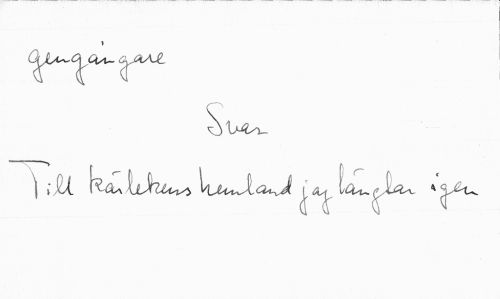 gengångare
Svar
Till kärlekens hemland jag längtar igen